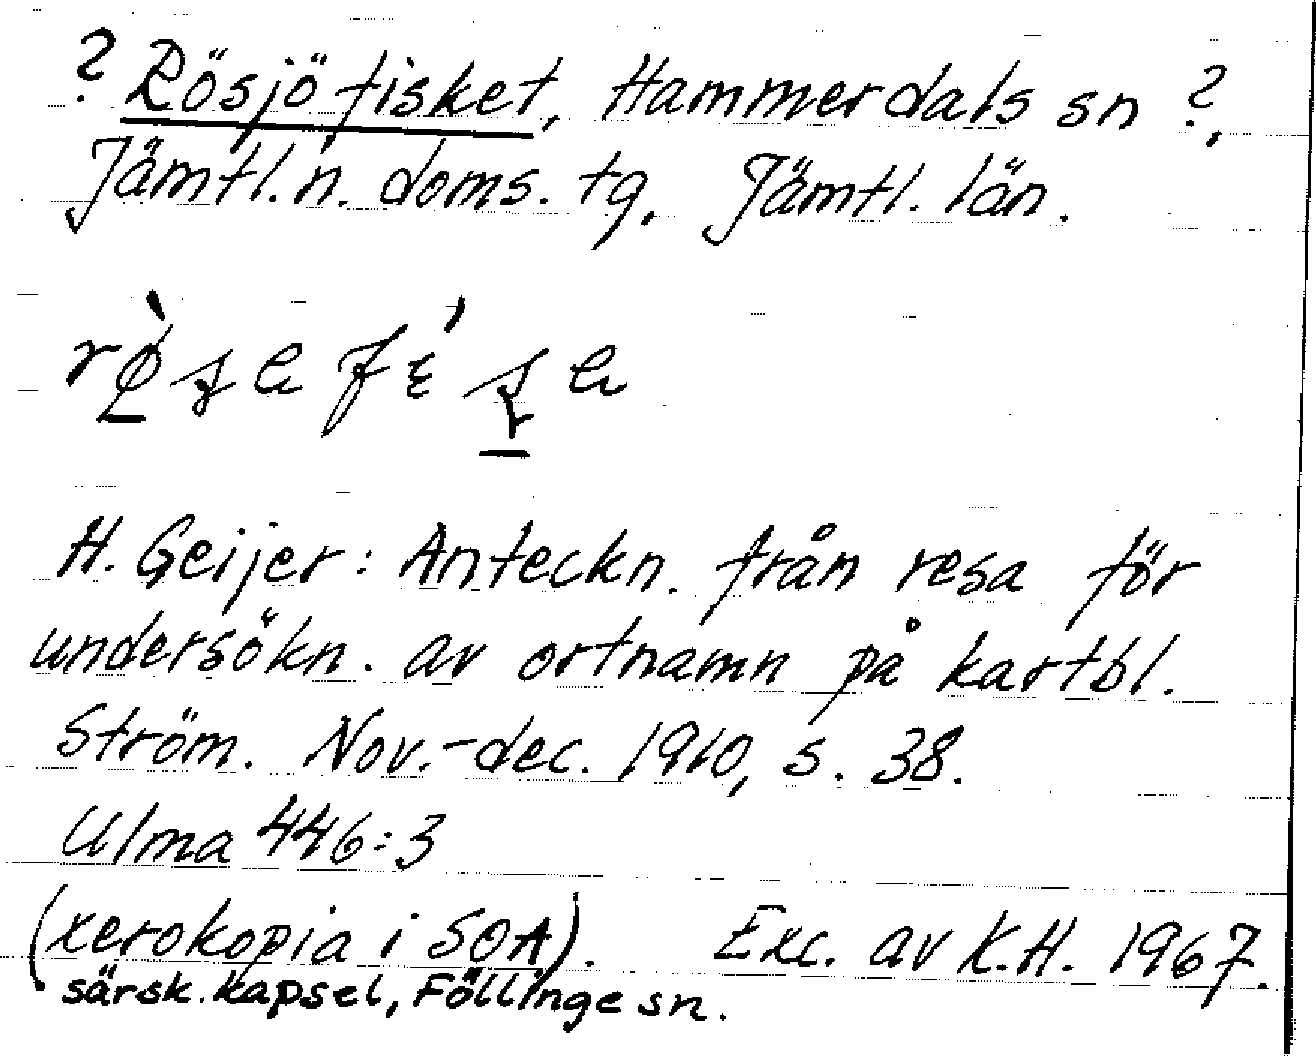 ? Rösjöfisket, Hammerdals sn ?,
Jämtl. n. doms. tg, Jämtl. län.
H. Geijer: Anteckn. från resa för
undersökn. av ortnamn på kartbl.
Ström. Nov.-dec. 1910, s. 38.
Ulma 446:3
(xerokopia i SOA). Exc. av K.H. 1967.
särsk. kapsel, Föllinge sn.